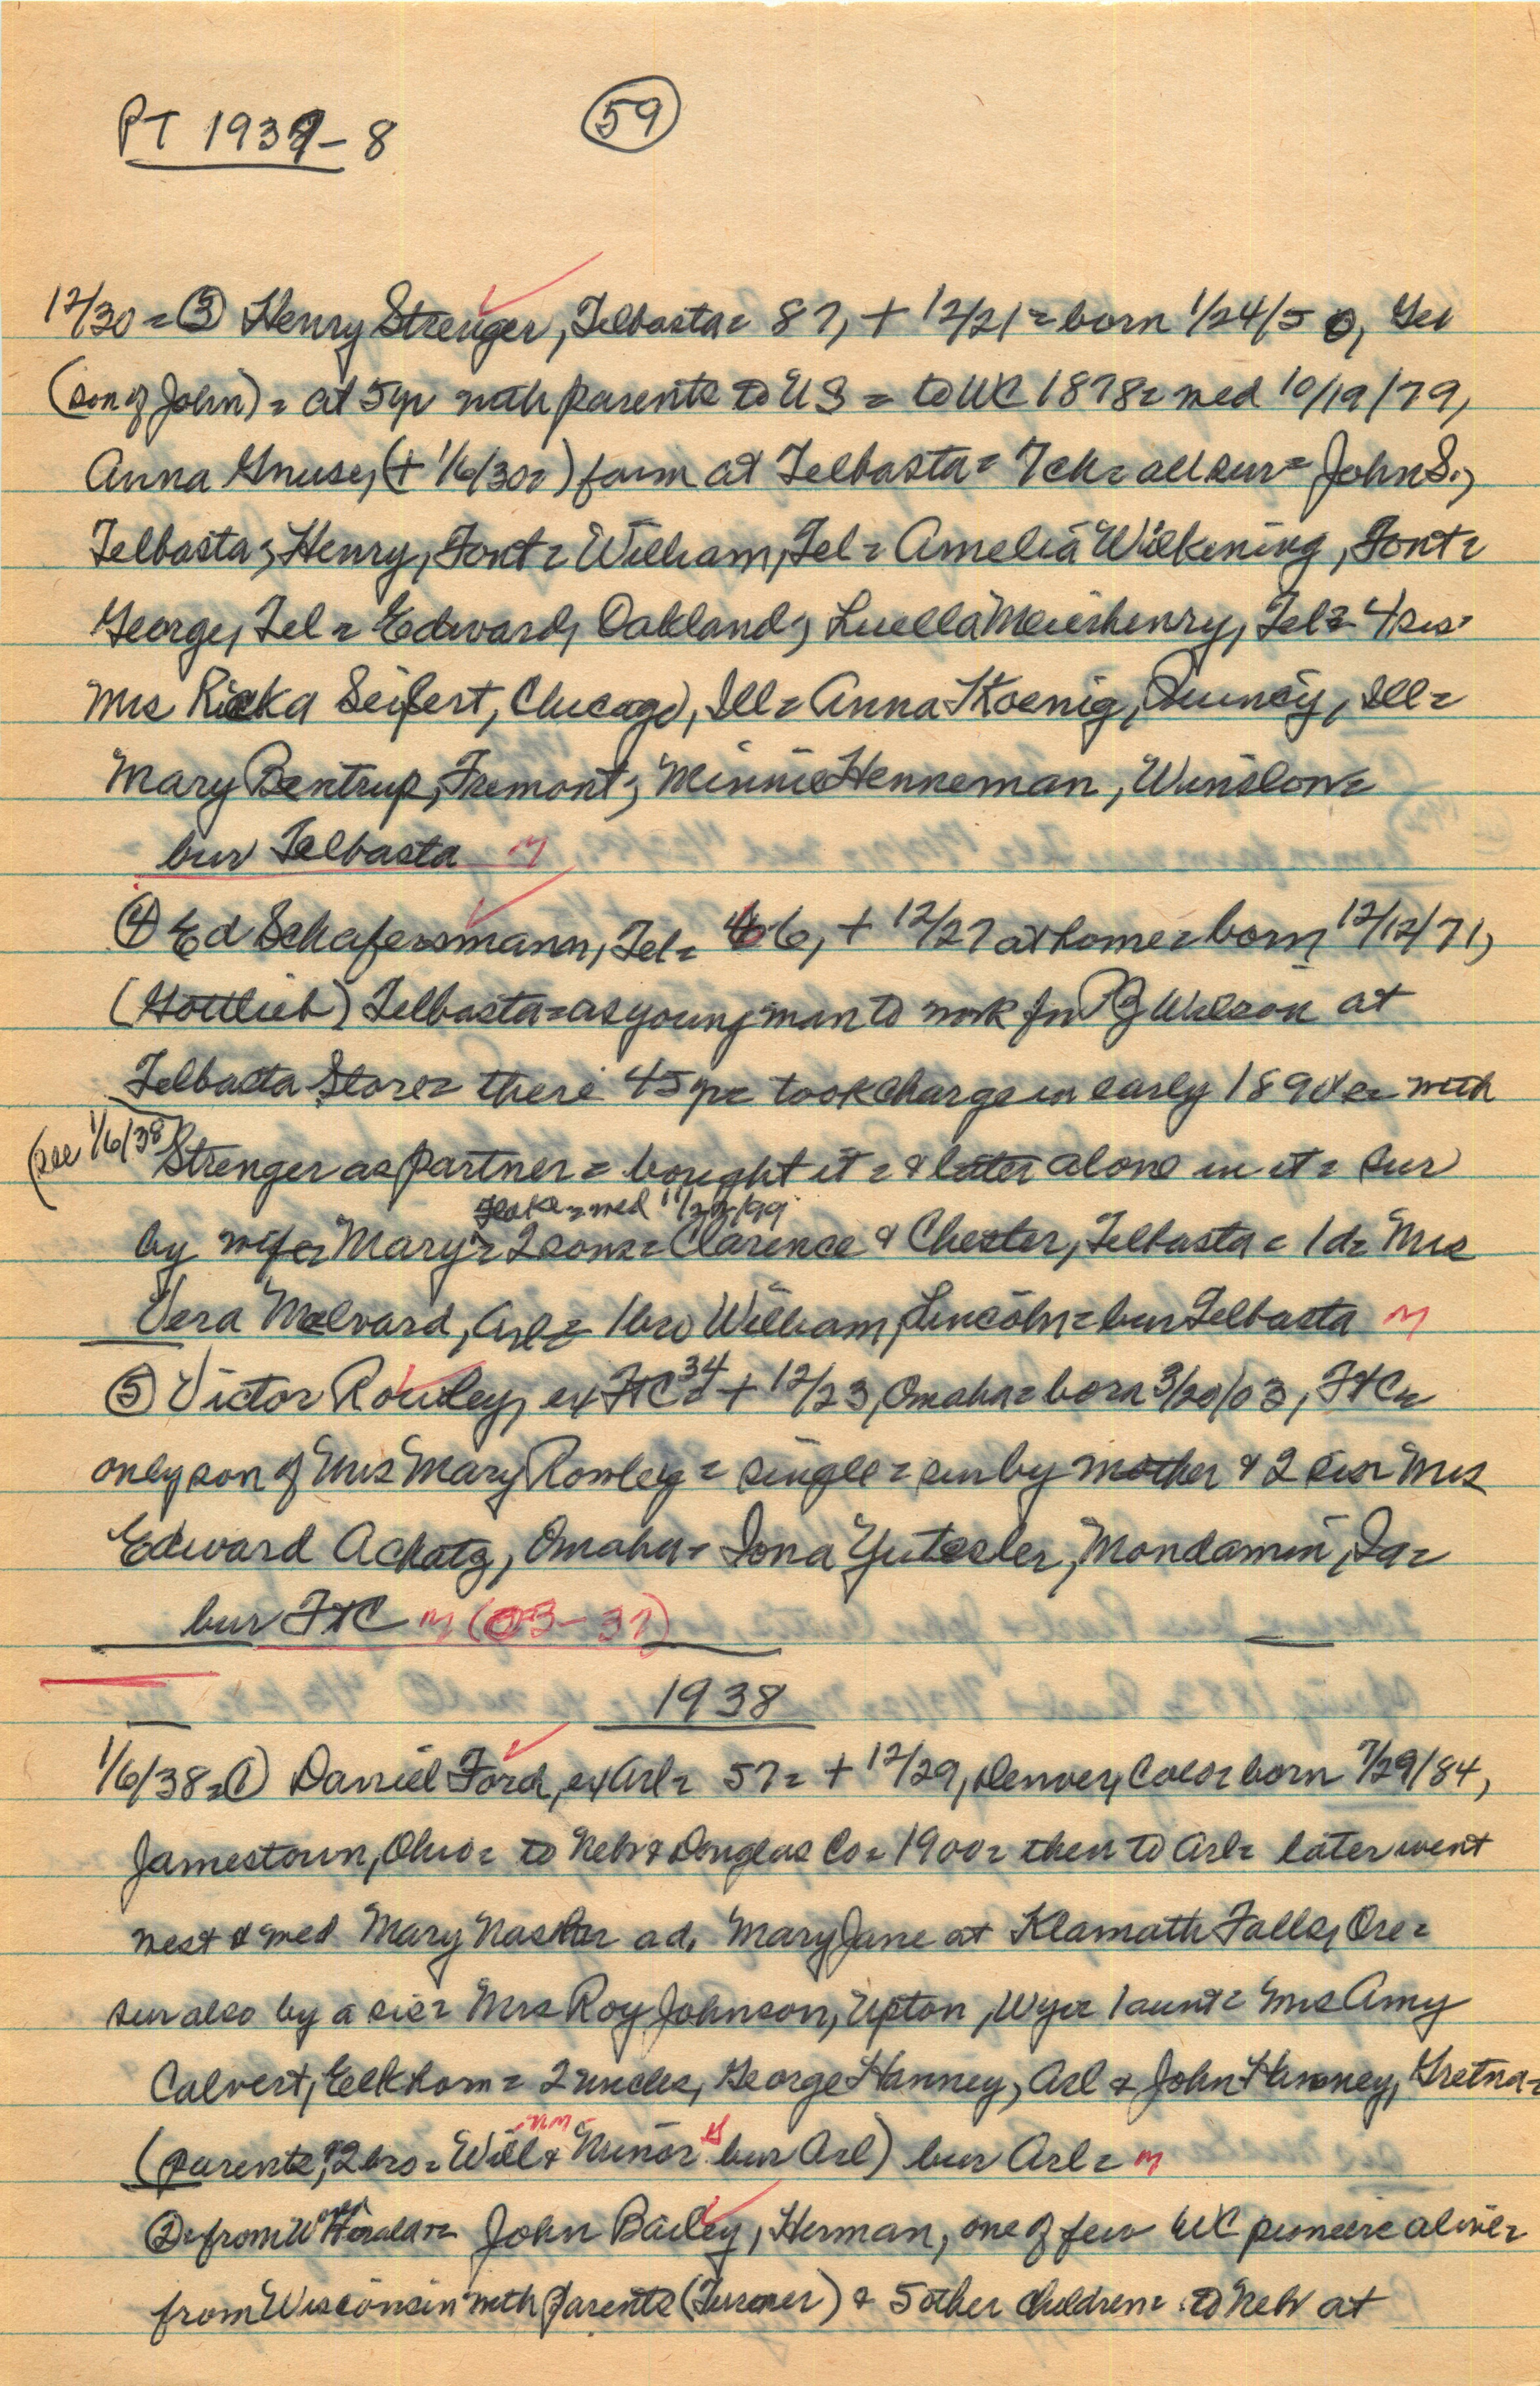 PT 1937-8
59
12/30 = ③ Henry Strenger, Telbasta = 87, + 12/21 = born 1/24/50, Ger
(son of John) = at 5 yr with parents to US = to WC 1878 = med 10/19/79,
Anna Gnuse, (+ 1/6/30 =) farm at Telbasta = 7 ch = all sur = John S.,
Telbasta; Henry, Font = William, Tel = Amelia Wilkening, Font =
George, Tel = Edward, Oakland; Luella Meierhenry, Tel = 4 sis =
Mrs Ricka Seifert, Chicago, Ill = Anna Koenig, Quincy, Ill =
Mary Bentrup, Fremont; Minnie Henneman, Winslow =
bur Telbasta M
④ Ed Schafersmann, Tel = 66, + 12/27 at home = born 12/12/71,
(Gottlieb) Telbasta = as young man to work for Wilson at
Telbasta Store = there 45 yr = took charge in early 1890s = with
(see 1/6/38) Strenger as partner = bought it = & later alone in it = sur
med 11/22/99
by wife Mary = 2 sons = Clarence & Chester, Telbasta = 1 d = Mrs
Vera Melvard, Arl = 1 bro William, Lincoln = bur Telbasta M
⑤ Victor Rowley, ex FtC = 34 + 12/23, Omaha = born 3/20/03, FtC =
only son of Mrs Mary Rowley = single = sur by mother & 2 sis = Mrs
Edward Achatz, Omaha = Iona Yutesler, Mondamin, Ia =
bur FtC M (03-37)
1938
1/6/38 = ① Daniel Ford, ex Arl = 57 = + 12/29, Denver, Colo = born 7/29/84,
Jamestown, Ohio = to Neb & Douglas Co = 1900 = then to Arl = later went
west & med Mary = a d, Mary Jane at Klamath Falls, Ore =
sur also by a sis = Mrs Roy Johnson, Upton, Wyo = 1 aunt = Mrs Amy
Calvert, Elkhorn = 2 uncles, George Hanney, Arl & John Hanney, Gretna =
(parents, 2 bro = Will & Minor bur Arl) bur Arl = M
② = from John Bailey, Herman, one of few WC pioneers alive =
from Wisconsin with parents (Turner) & 5 other children = to Neb at